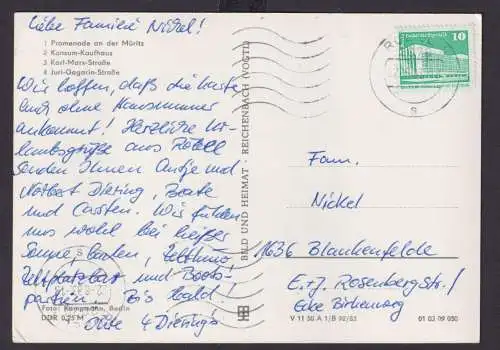 Liebe Familie Nickel!
1 Promenade an der Müritz
2 Konsum-Kaufhaus
3 Karl-Marx-Straße
4 Juri-Gagarin-Straße
Wir hoffen, daß die Karte
auch ohne Hausnummer
ankommt! Herzliche Ur-
laubsgrüße aus
senden Ihnen Antje und
Norbert Diering, Beate
und Carsten. Wir fühlen
uns wohl bei heißer
Sonne, baden,
und Boots-
partien. Bis bald!
Ihre 4 Diering's
Foto: Kampmann, Berlin
DDR 0,25 M
BILD UND HEIMAT REICHENBACH (VOGTL)
10
Fam.
Nickel
1636 Blankenfelde
E.-T. Rosenberg Str./
Ecke Birkenweg
V 11 50 A 1/B 92/82 01 03 09 050